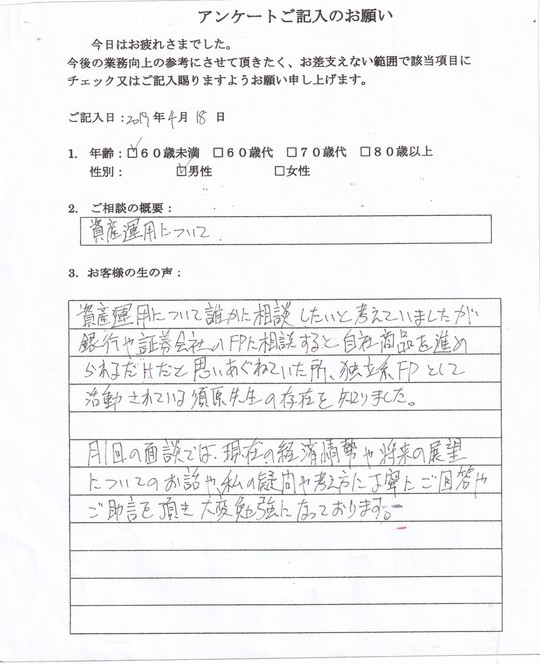 アンケートご記入のお願い
今日はお疲れさまでした。
今後の業務向上の参考にさせて頂きたく、お差支えない範囲で該当項目に
チェック又はご記入賜りますようお願い申し上げます。
ご記入日：2019年4月18日
1. 年齢：☑６０歳未満 □６０歳代 □７０歳代 □８０歳以上
性別： ☑男性 □女性
2. ご相談の概要：
資産運用について
3. お客様の生の声：
資産運用について誰かに相談したいと考えていましたが
銀行や証券会社のFPに相談すると自社商品を進め
られるだけだと思いあぐねていた所、独立系FPとして
活動されている須原先生の存在を知りました。
月1回の面談では、現在の経済情勢や将来の展望
についてのお話や私の疑問や考え方に丁寧にご回答や
ご助言を頂き大変勉強になっております。